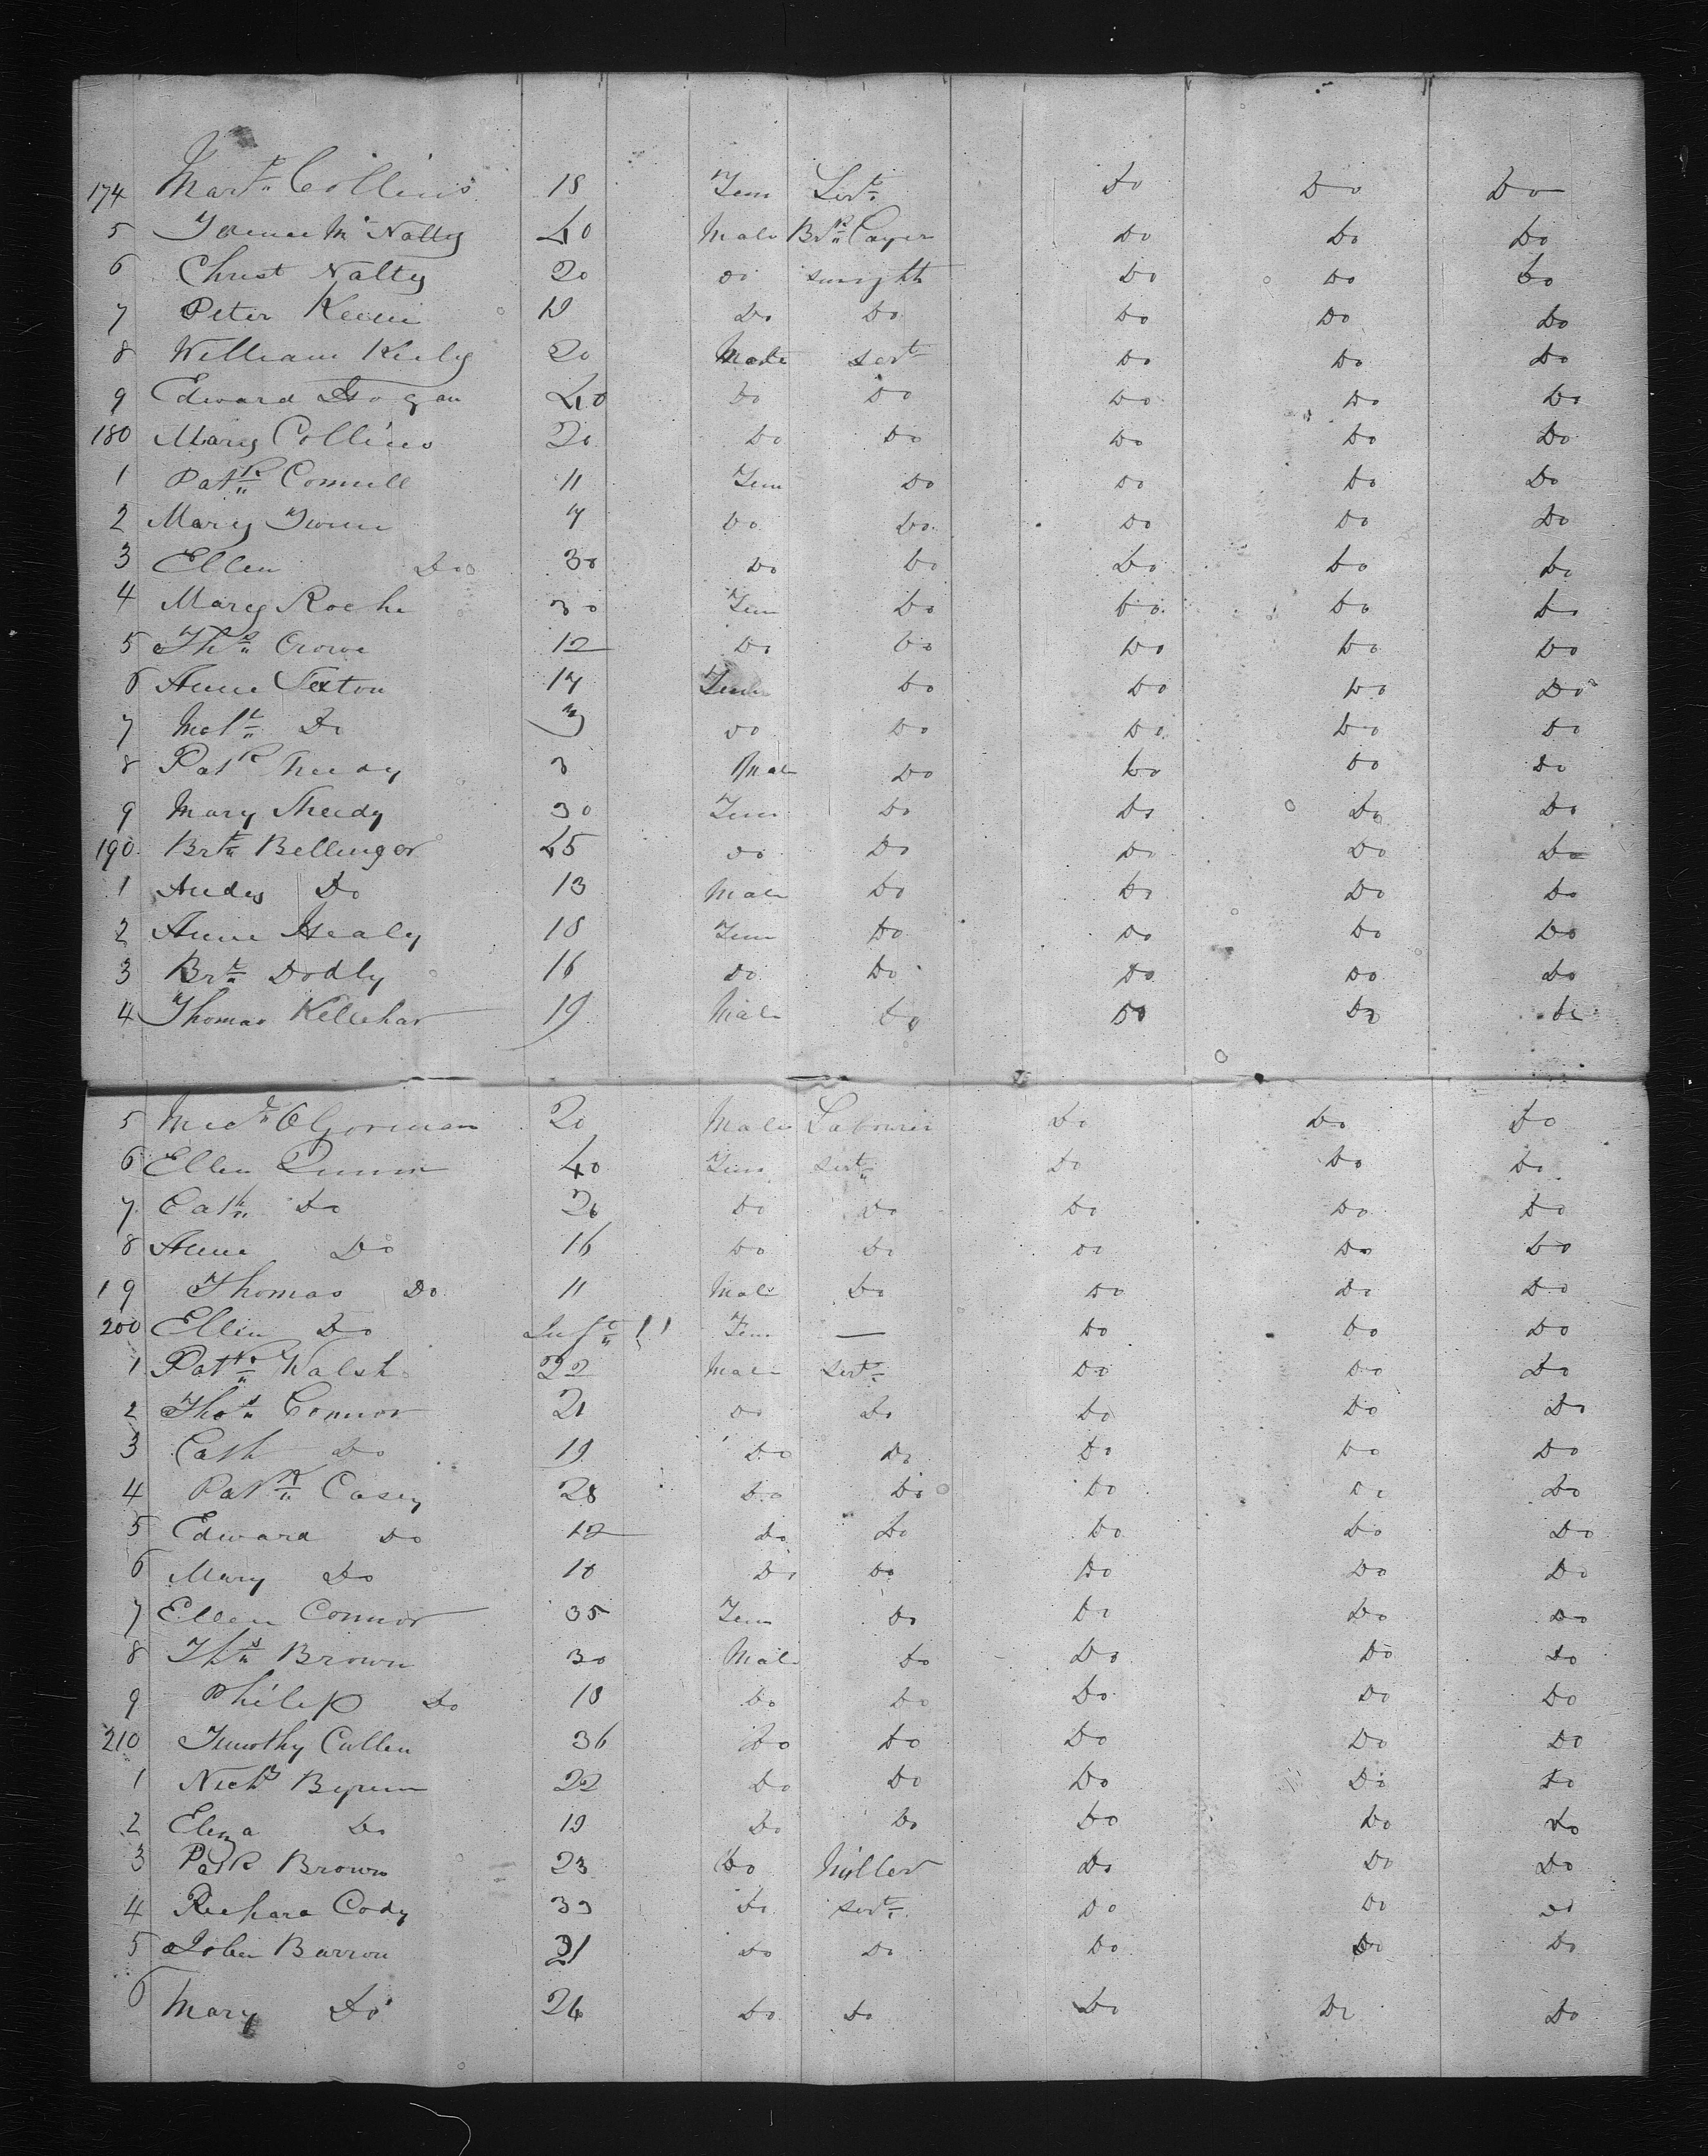 174 Mart. Collins 18 Fem Servt. Do Do Do
5 McNally 40 Male Brk Layer Do Do Do
6 Christ Nalty 20 Do smight Do Do Do
7 Peter 19 Do Do Do Do Do
8 William Kiely 20 Male servt Do Do Do
9 Edward Hogan 40 Do Do Do Do Do
180 Mary Collins 20 Do Do Do Do Do
1 Patk Connell 11 Fem Do Do Do Do
2 Mary 7 Do Do Do Do Do
3 Ellen Do 30 Do Do Do Do Do
4 Mary Roche 30 Fem Do Do Do Do
5 Ths Crowe 12 Do Do Do Do Do
6 Anne Sexton 17 Fem Do Do Do Do
7 Do Do Do Do Do Do
8 Patk Sheedy 3 Male Do Do Do Do
9 Mary Sheedy 30 Fem Do Do Do Do
190 Brt Bellinger 45 Do Do Do Do Do
1 Andw Do 13 Male Do Do Do Do
2 Anne Healy 18 Fem Do Do Do Do
3 Brt Dodly 16 Do Do Do Do Do
4 Thomas Kellehar 19 Male Do Do Do Do
5 OGorman 20 Male Labourer Do Do Do
6 Ellen Quinn 40 Fem servt. Do Do Do
7 Cath Do 26 Do Do Do Do Do
8 Anne Do 16 Do Do Do Do Do
19 Thomas Do 11 Male Do Do Do Do
200 Ellen Do Inft Fem — Do Do Do
1 Patk Walsh 22 Male servt. Do Do Do
2 Thos Connor 21 Do Do Do Do Do
3 Cath Do 19 Do Do Do Do Do
4 Patk Casey 28 Do Do Do Do Do
5 Edward Do 12 Do Do Do Do Do
6 Mary Do 10 Do Do Do Do Do
7 Ellen Connor 35 Fem Do Do Do Do
8 Ths Brown 30 Male Do Do Do Do
9 Philip Do 18 Do Do Do Do Do
210 Timothy Cullen 36 Do Do Do Do Do
1 Nichs 22 Do Do Do Do Do
2 Eliza Do 19 Do Do Do Do Do
3 Patk Brown 23 Do Miller Do Do Do
4 Richard Cody 33 Do servt. Do Do Do
5 John Barron 31 Do Do Do Do Do
6 Mary Do 26 Do Do Do Do Do